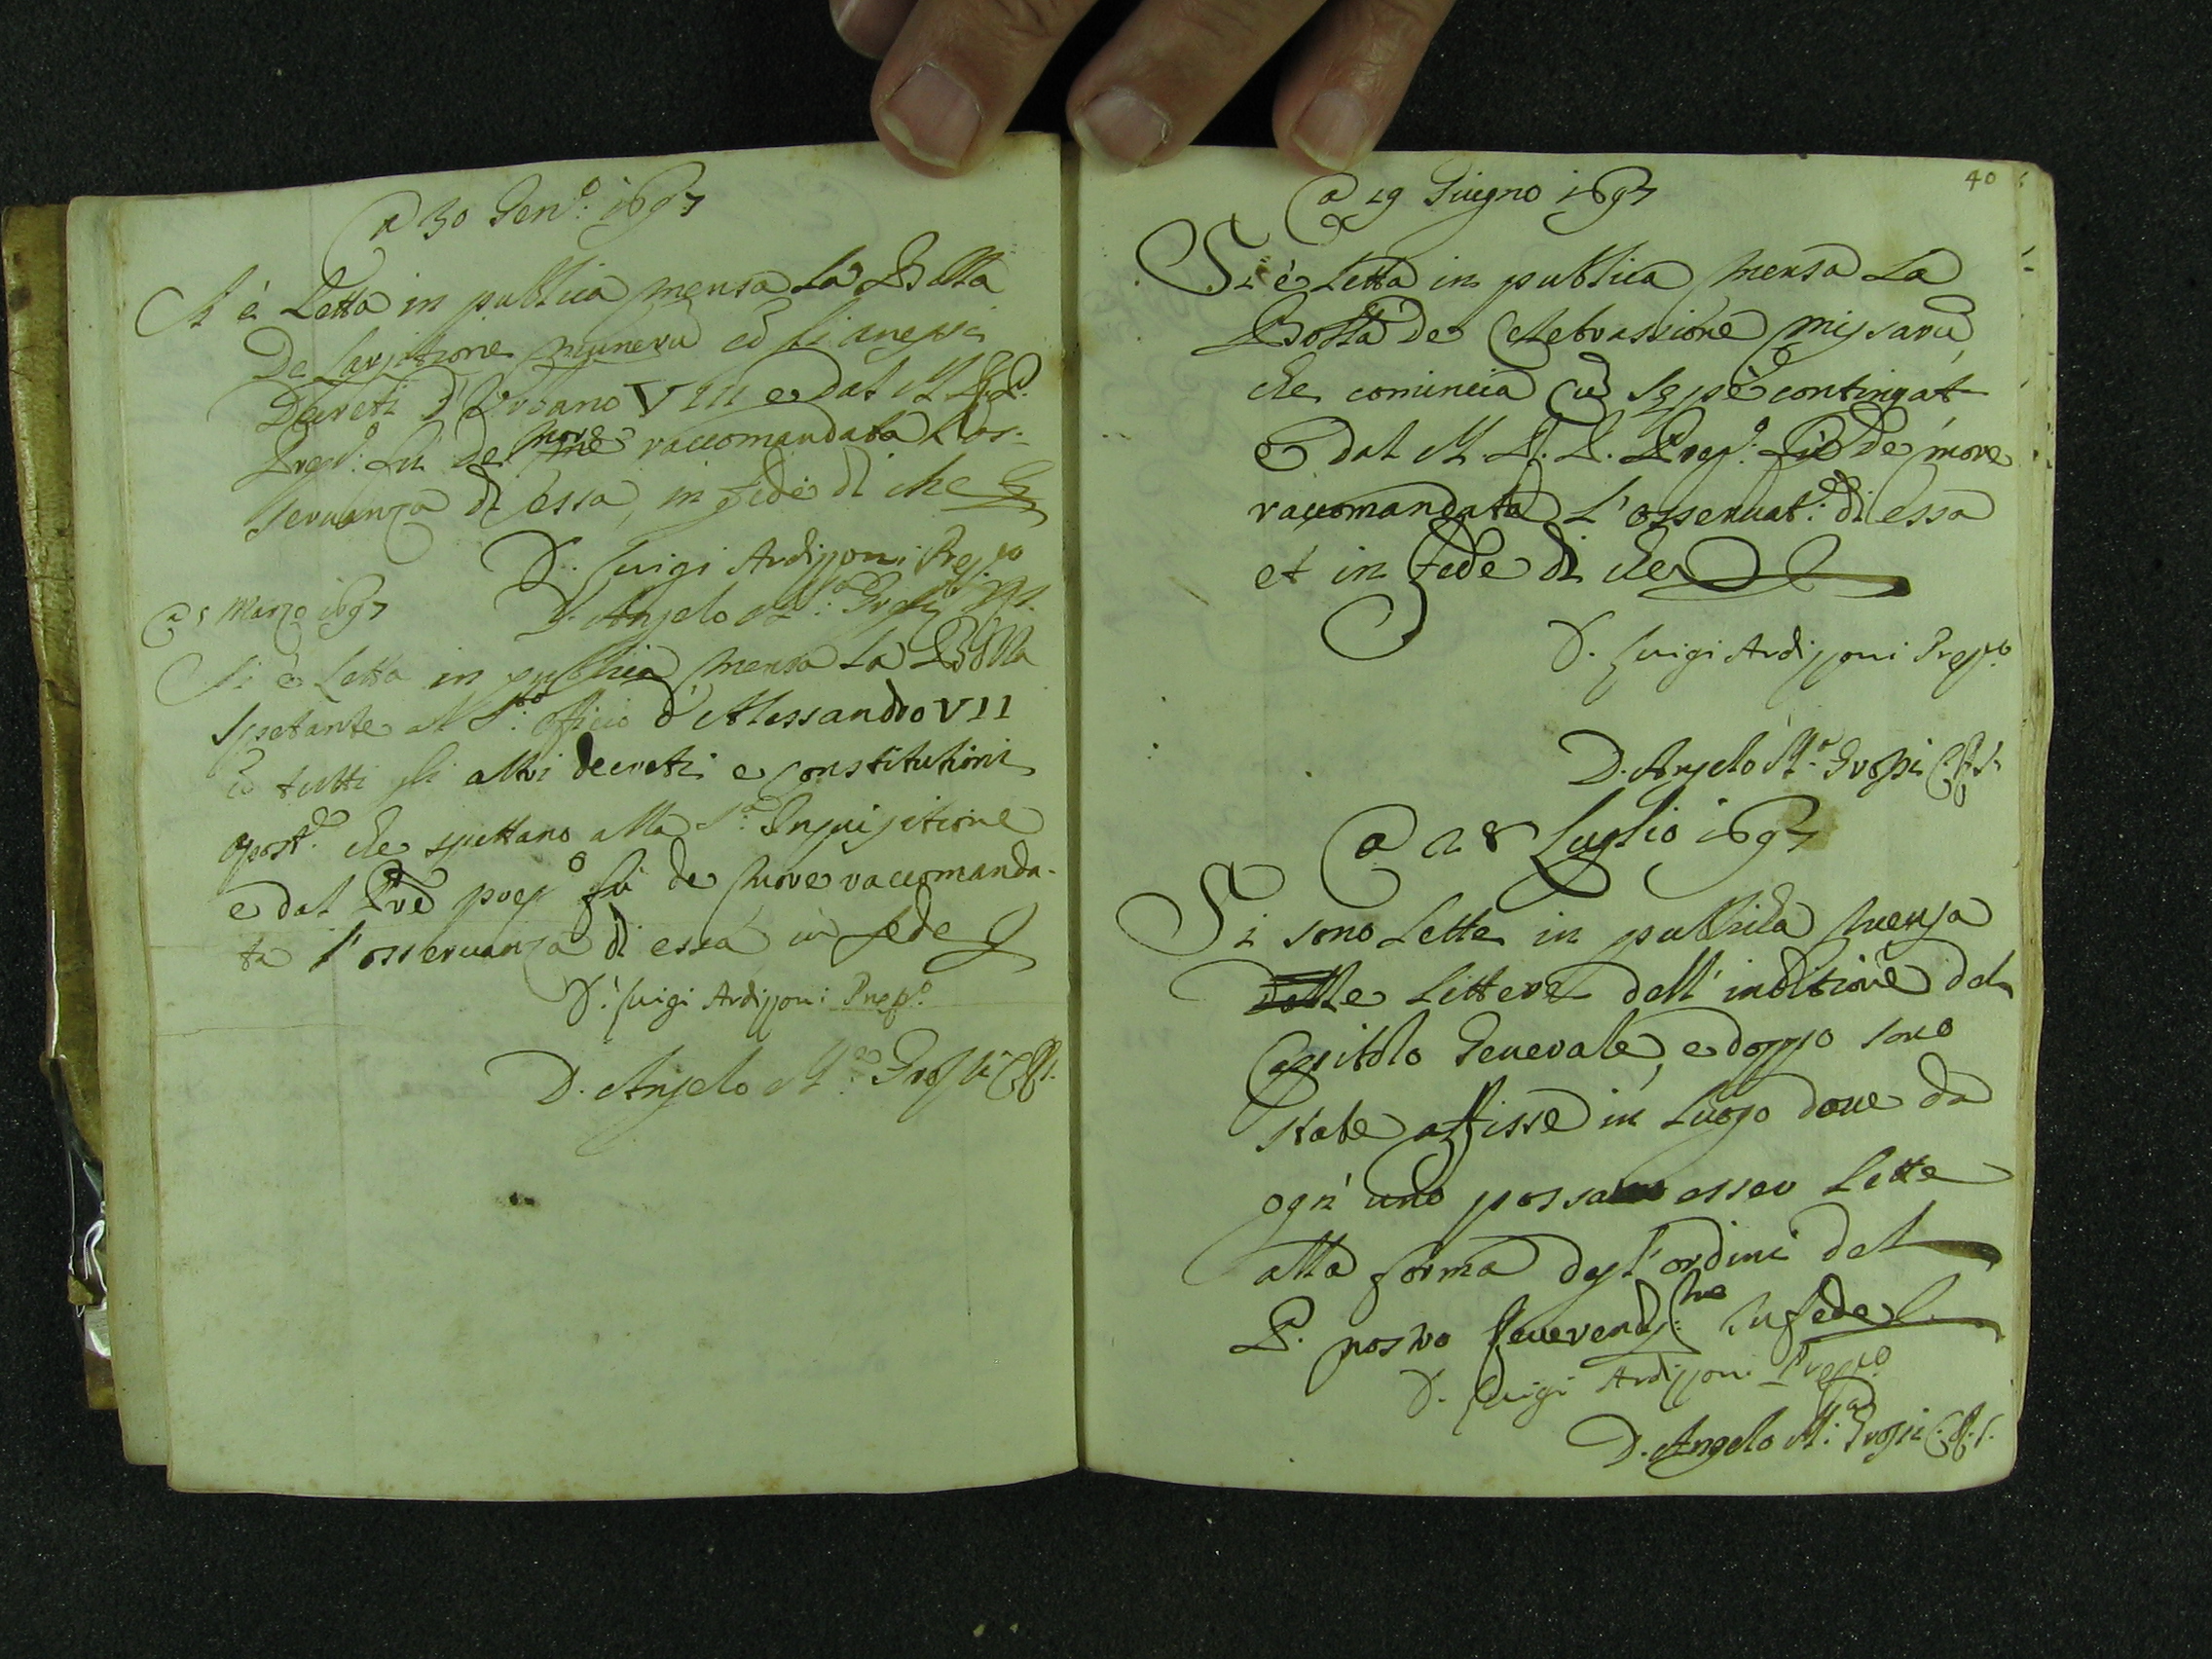 a 30 Gen.º 1697
Si è Letta in publica mensa La Bolla
De largitione munerũ cõ li anessi
Decreti d'Urbano VIII e dal M. R. P.
Prep.º fù de more raccomandata l'os-
servanza di essa, in fede di che
D. Luigi Ardizzoni Prep.to
D. Angelo M.ª Grossi
a 5 Marzo 1697
Si è Letta in publica mensa La Bolla
Spetante al S.to Officio d'Alessandro VII
cõ tutti gli altri decreti e constitutioni
apost.e che spettano alla S.ª Inquisitione
e dal Pre prep.º fù de more raccomanda-
ta l'osservanza di essa in fede
D. Luigi Ardizzoni Prep.º
D. Angelo M.ª Grossi C.R.S.
40
a 19 Giugno 1697
Si è Letta in publica mensa La
Bolla De Celebrassione missarũ,
che comincia Cũ sæpè contingat
e dal M. R. P. Prep.º fù de more
raccomandata L'osservat.e di essa
et in fede di che
D. Luigi Ardizzoni Prep.to
D. Angelo M.ª Grossi C.R.S.
a 28 Luglio 1697
Si sono Lette in publica mensa
delle Littere dell'inditione del
Capitolo Generale, e doppo sono
state affisse in Luogo dove da
ogn'uno possa esser Lette
alla forma degl'ordini del
P. nostro Reverendis.mo In fede
D. Luigi Ardizzoni Prep.to
D. Angelo M.ª Grossi C.R.S.